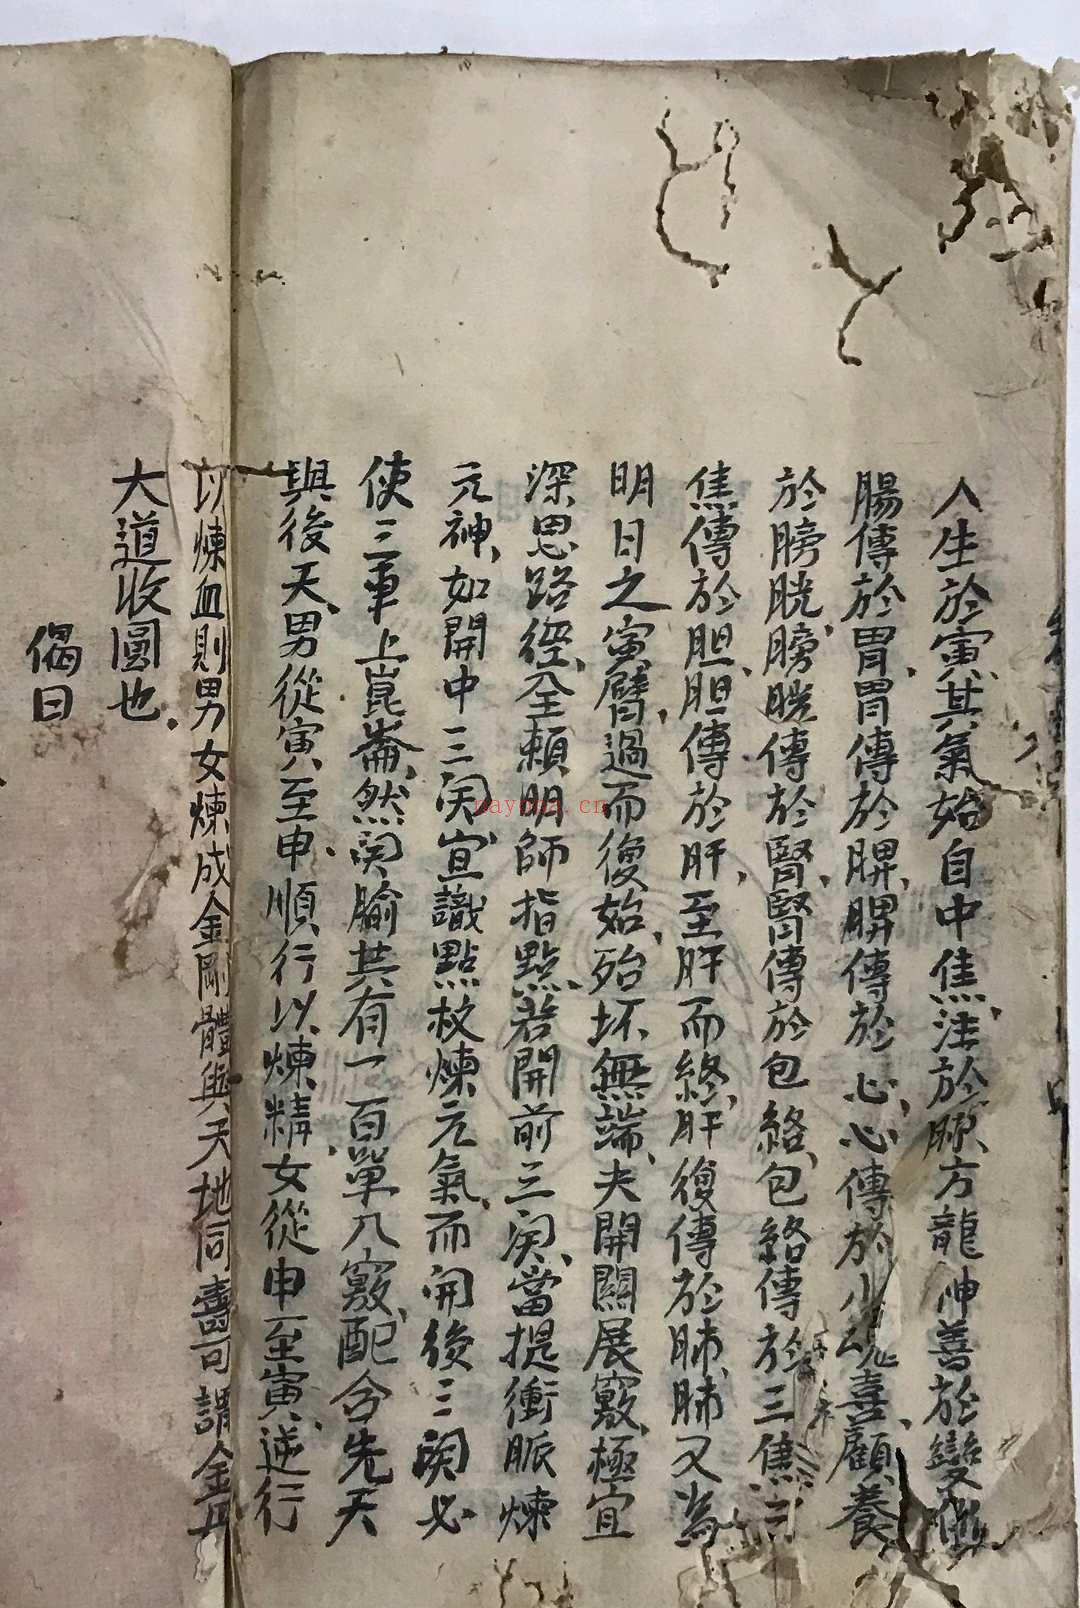 人生於寅其氣始自中焦注於肺方龍神善於變
腸傳於胃胃傳於脾脾傳於心心傳於小魂喜顧養
於膀胱膀胱傳於腎腎傳於包絡包絡傳於三焦三
焦傳於胆胆傳於肝至肝而終肝復傳於肺肺又為
明日之寅臂過而復始殆坏無端夫開關展竅極宜
深思路徑全賴明師指點若開前三関當提衝脈煉
元神如開中三関宜識點杖煉元氣而開後三関必
使三車上崑崙然関腧共有一百單八竅配合先天
與後天男從寅至申順行以煉精女從申至寅逆行
以煉血則男女煉成金剛體與天地同壽可謂金丹
大道收圓也
偈曰
nayona.cn